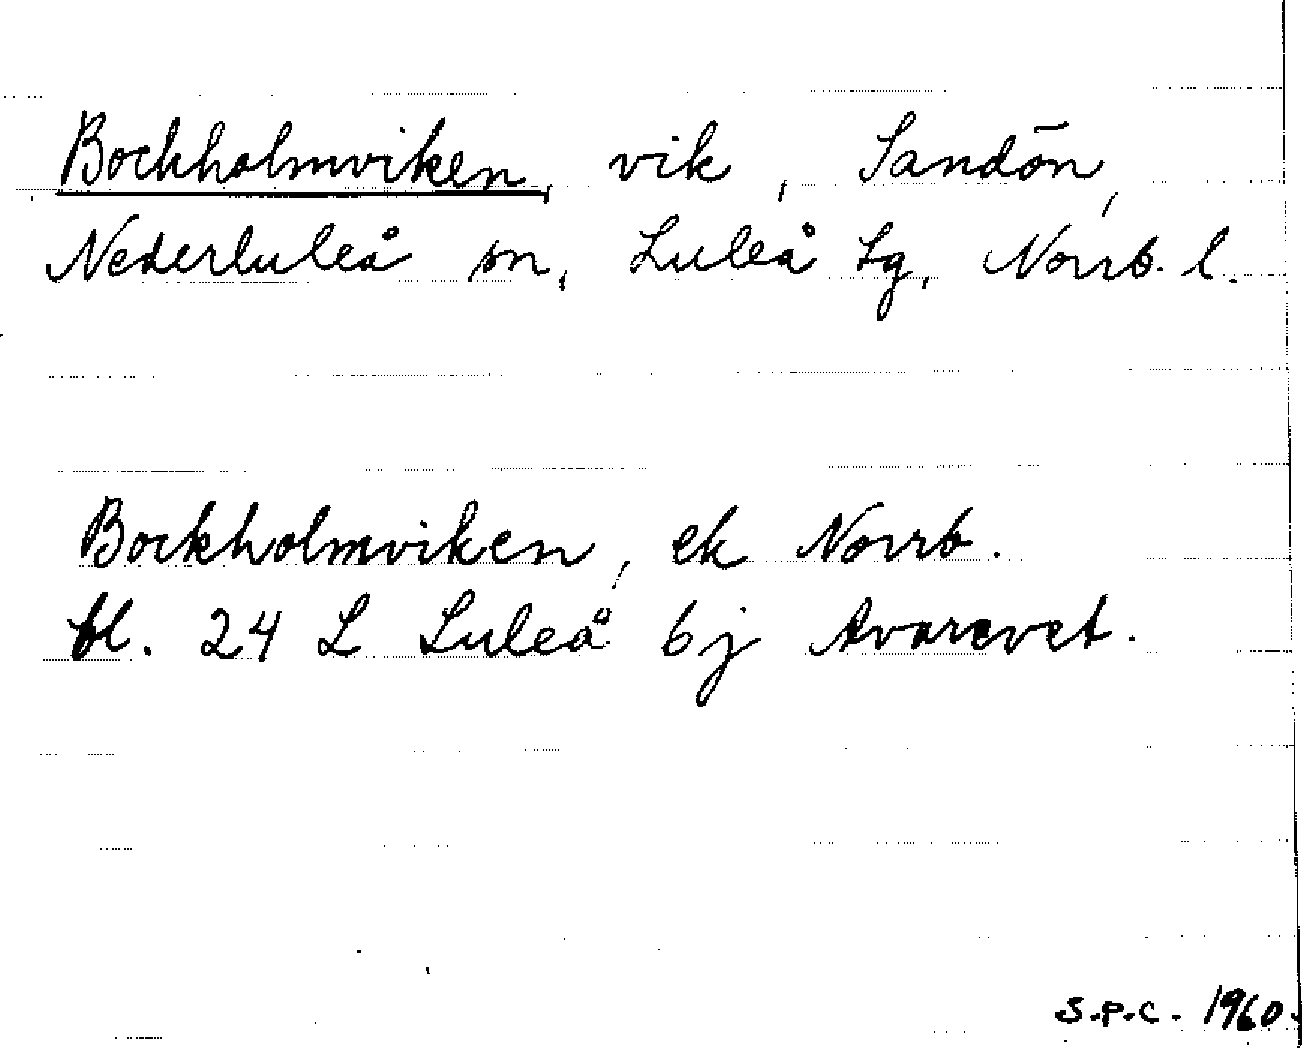 Bockholmviken, vik, Sandön,
Nederluleå sn, Luleå tg, Norrb. l.
Bockholmviken, ek Norrb.
bl. 24 L Luleå bj Avarevet.
S.P.C. 1960.